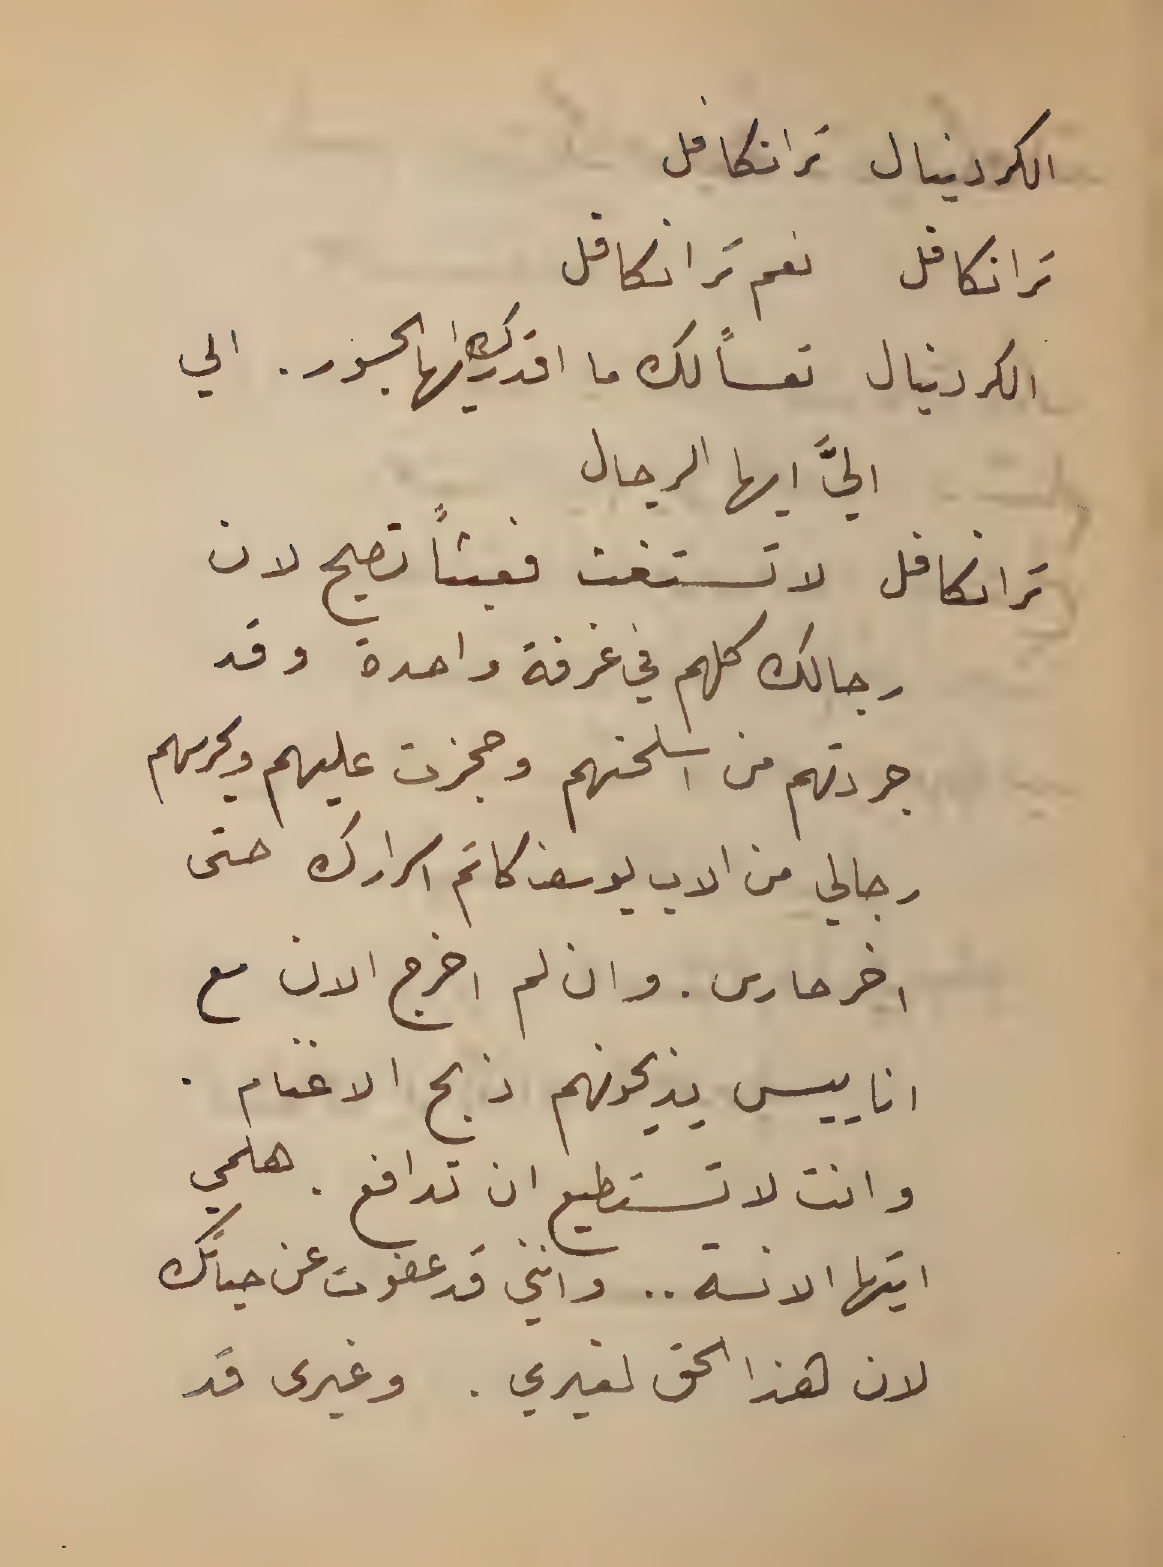 الكردينال ترانكافل
ترانكافل نعم ترانكافل
الكردينال تعساً لك ما اقدرك ايها الجسور . الي
اليَّ ايها الرجال
ترانكافل لا تستغث فعبثاً تصيح لان
رجالك كلهم في غرفة واحدة وقد
جردتهم من اسلحتهم وحجزت عليهم ويحرسهم
رجالي من الاب يوسف كاتم اسرارك حتى
اخر حارس . وان لم اخرج الان مع
اناييس يذبحونهم ذبح الاغنام .
وانت لا تستطيع ان تدافع . هلمي
ايتها الانسة .. وانني قد عفوت عن حياتك
لان هذا الحق لغيري . وغيرى قد